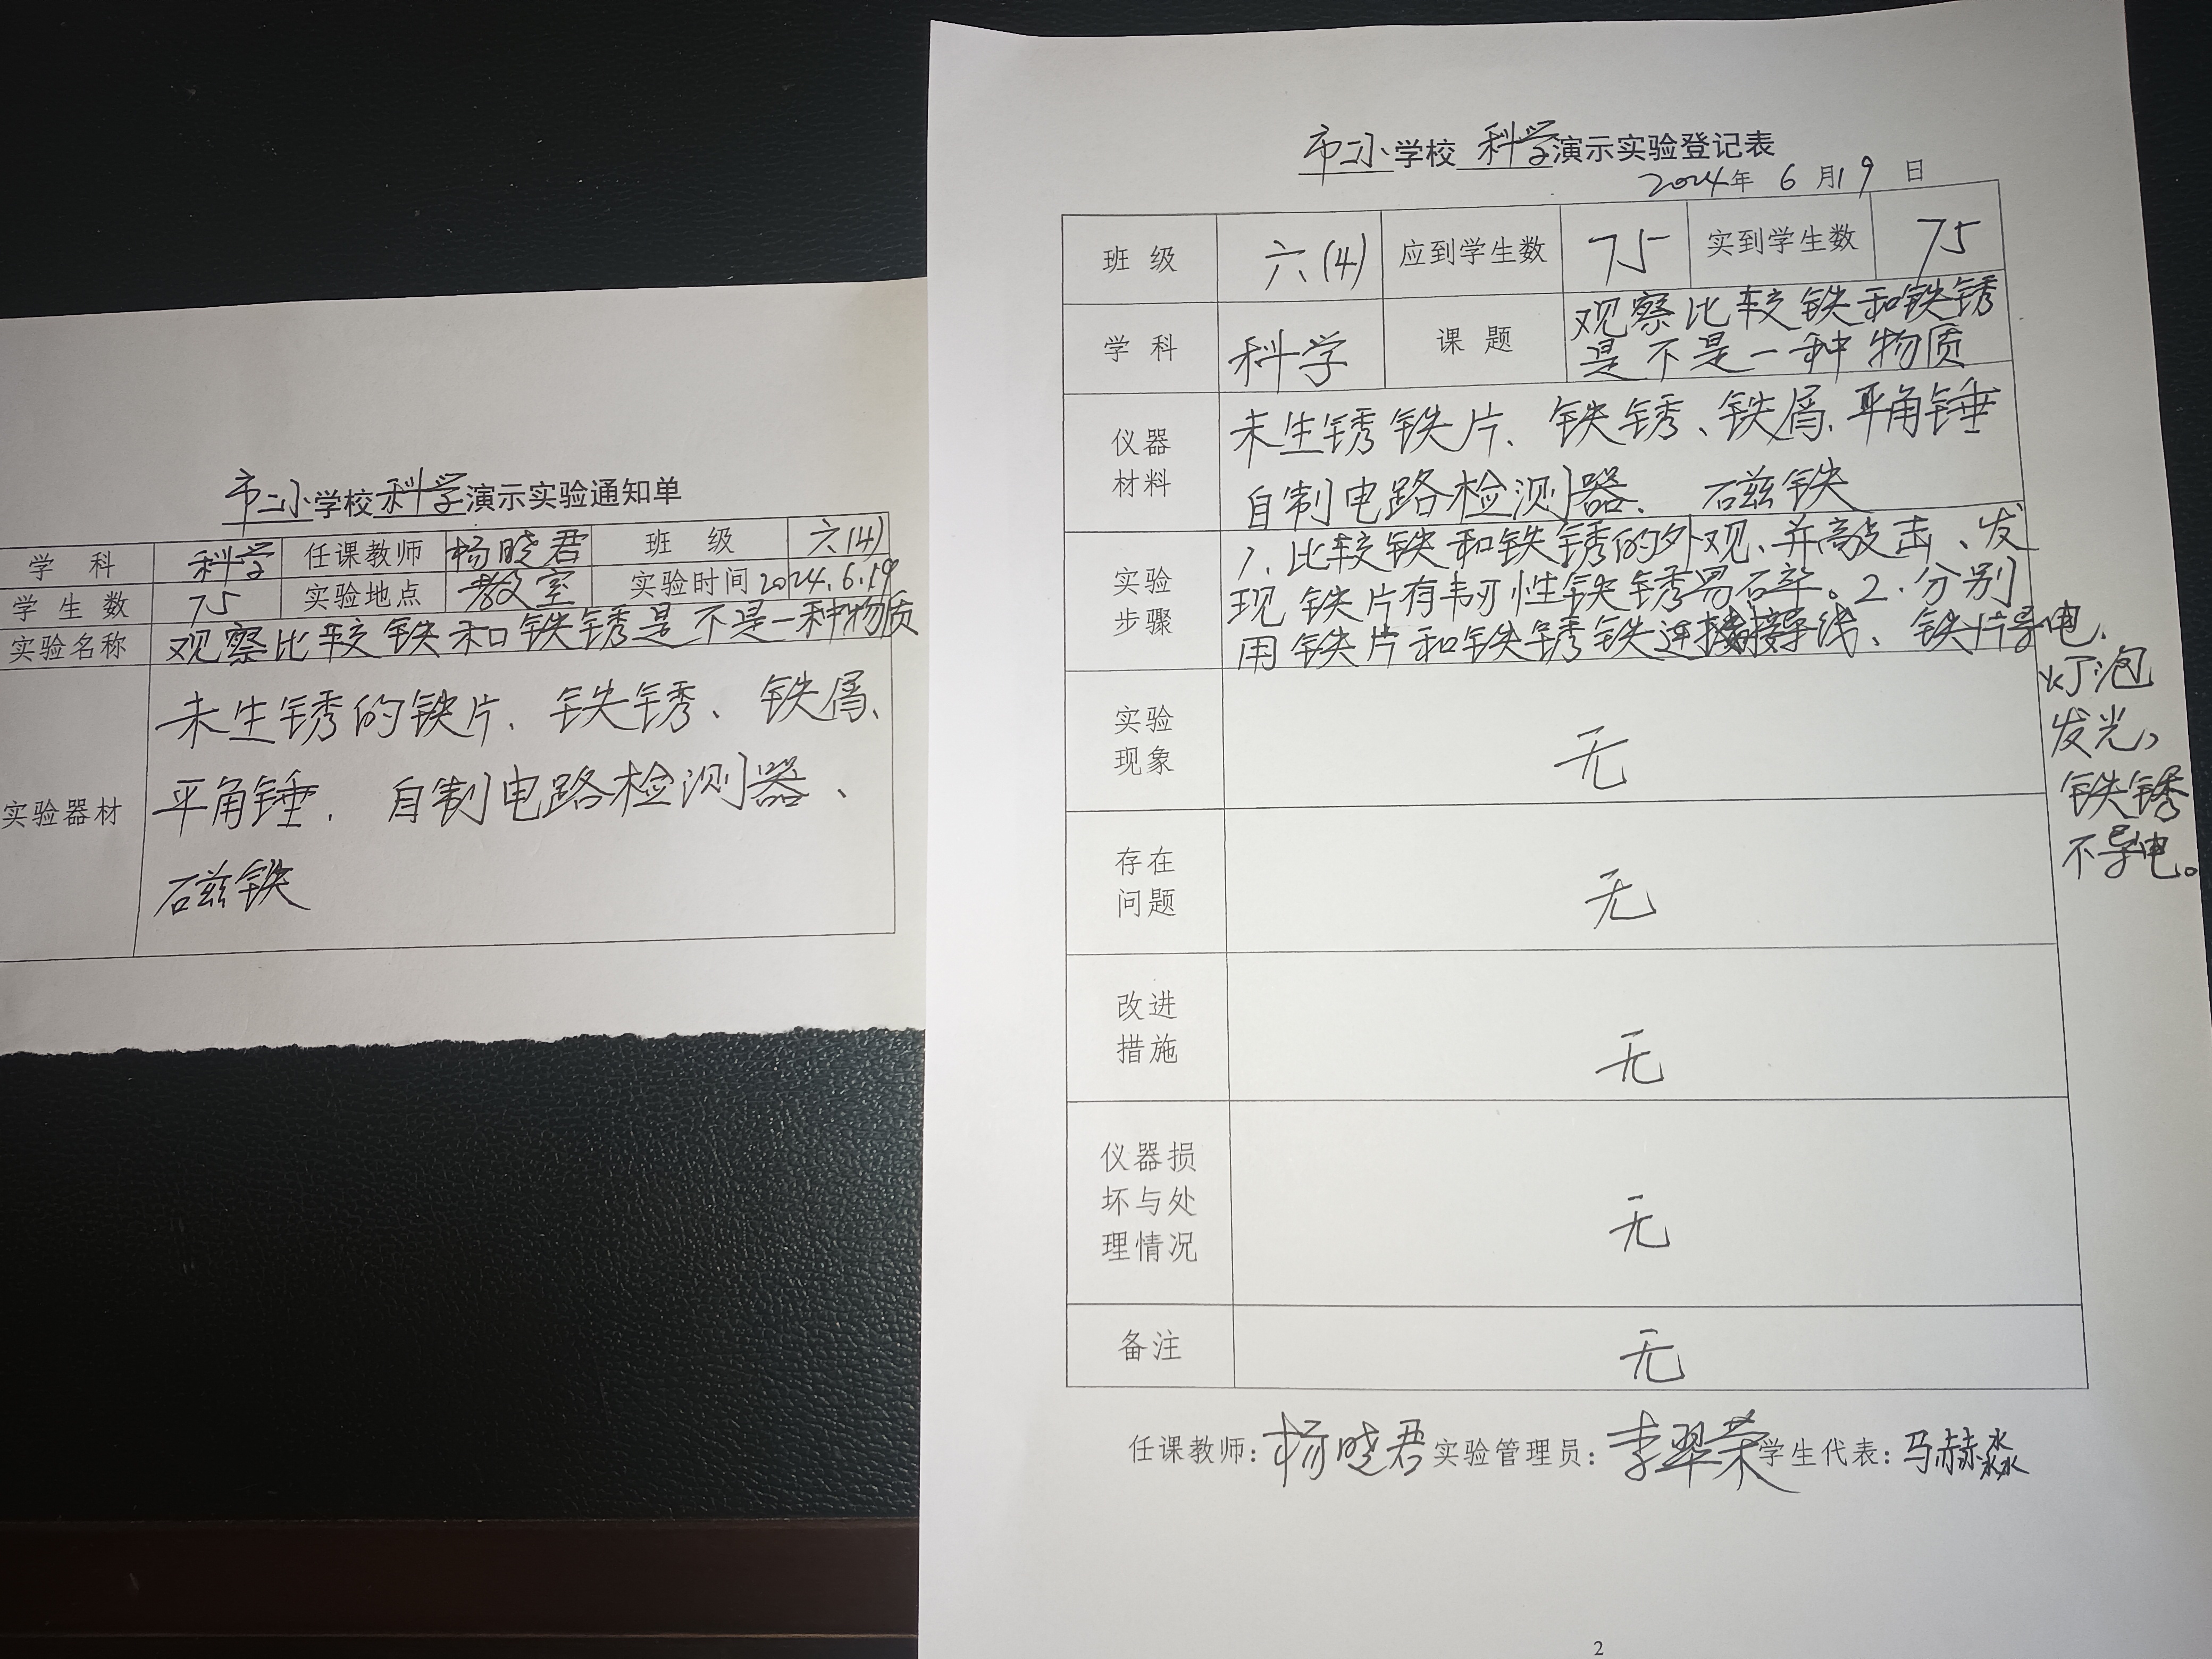 市二小学校科学演示实验通知单
学 科 科学 任课教师 杨晓君 班 级 六(4)
学 生 数 75 实验地点 教室 实验时间 2024.6.19
实验名称 观察比较铁和铁锈是不是一种物质
实验器材
未生锈的铁片、铁锈、铁屑、
平角锤、自制电路检测器、
磁铁
市二小学校科学演示实验登记表
2024年 6 月19 日
班 级 六(4) 应到学生数 75 实到学生数 75
学 科 科学 课 题 观察比较铁和铁锈
是不是一种物质
仪器
材料
未生锈铁片、铁锈、铁屑、平角锤
自制电路检测器、磁铁
实验
步骤
1、比较铁和铁锈的外观、并敲击、发
现铁片有韧性铁锈易碎。2、分别
用铁片和铁锈铁连接导线、铁片导电、
灯泡
发光,
铁锈
不导电。
实验
现象
无
存在
问题
无
改进
措施
无
仪器损
坏与处
理情况
无
备注 无
任课教师:杨晓君 实验管理员:李翠荣 学生代表:马赫淼
2